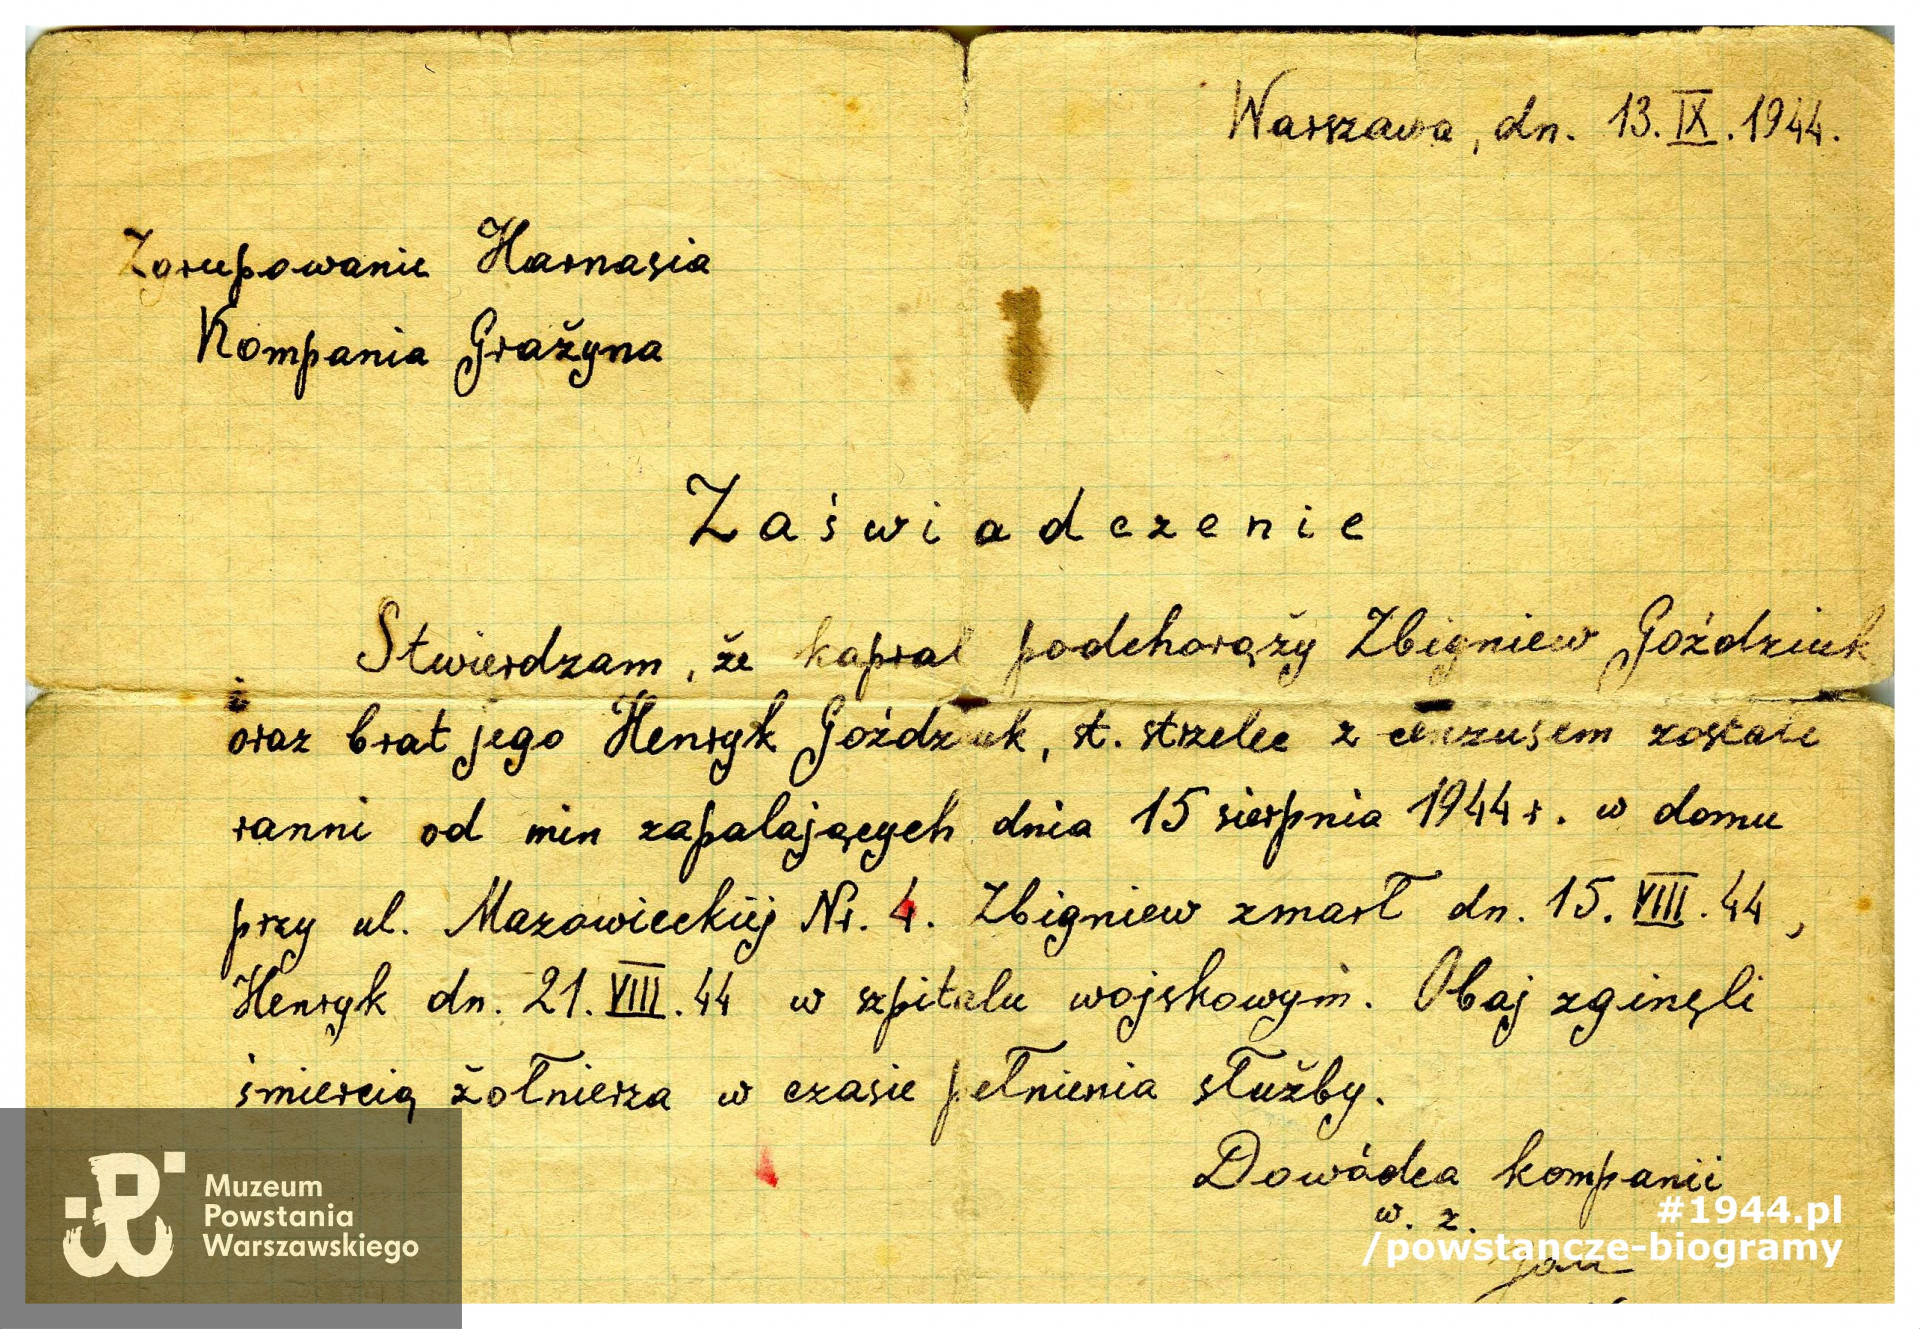 Warszawa, dn. 13.IX.1944.
Zgrupowanie Harnasia
Kompania Grażyna
Zaświadczenie
Stwierdzam, że kapral podchorąży Zbigniew Goździuk
i
oraz brat jego Henryk Goździuk, st. strzelec z cenzusem zostali
ranni od min zapalających dnia 15 sierpnia 1944 r. w domu
przy ul. Mazowieckiej Nr. 4. Zbigniew zmarł dn. 15.VIII.44,
Henryk dn. 21.VIII.44 w szpitalu wojskowym. Obaj zginęli
śmiercią żołnierza w czasie pełnienia służby.
Dowódca kompanii
w. z.
Muzeum
Powstania
Warszawskiego
#1944.pl
/powstancze-biogramy